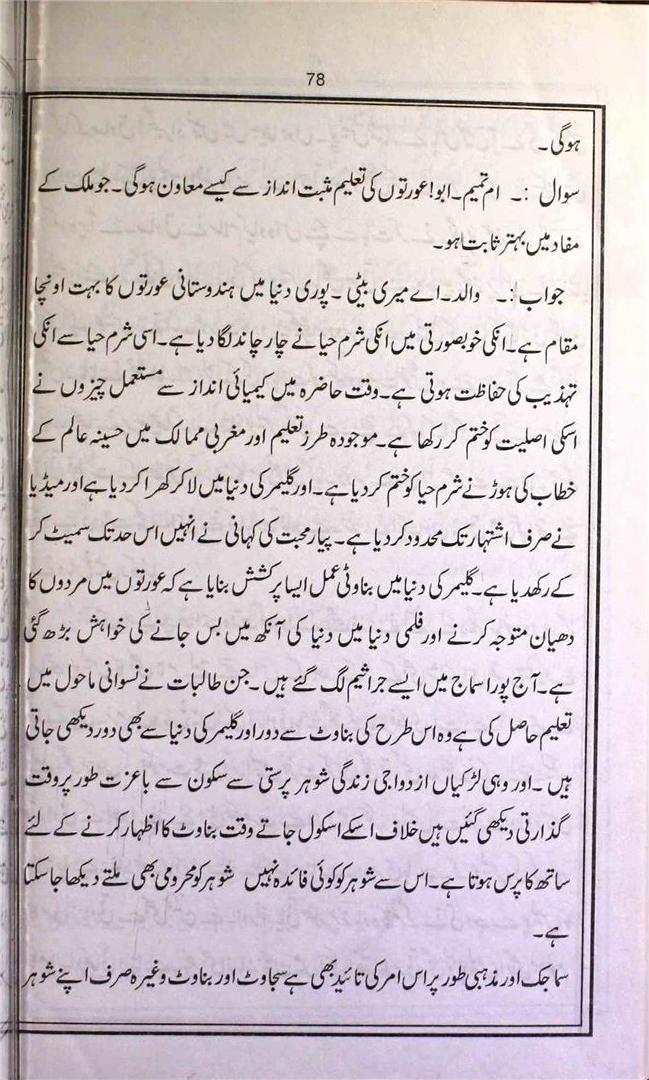 78
ہوگی۔
سوال :۔ ام تمیم۔ابو!عورتوں کی تعلیم مثبت انداز سے کیسے معاون ہوگی۔جو ملک کے
مفاد میں بہتر ثابت ہو۔
جواب :۔ والد۔اے میری بیٹی ۔پوری دنیا میں ہندوستانی عورتوں کا بہت اونچا
مقام ہے۔انکی خوبصورتی میں انکی شرم حیا نے چار چاند لگا دیا ہے۔اسی شرم حیا سے انکی
تہذیب کی حفاظت ہوتی ہے۔وقت حاضرہ میں کیمیائی انداز سے مستعمل چیزوں نے
اسکی اصلیت کو ختم کر رکھا ہے۔موجودہ طرز تعلیم اور مغربی ممالک میں حسینہ عالم کے
خطاب کی ہوڑ نے شرم حیا کو ختم کر دیا ہے۔اور گلیمر کی دنیا میں لا کر کھرا کر دیا ہے اور میڈیا
نے صرف اشتہار تک محدود کر دیا ہے۔پیار محبت کی کہانی نے انہیں اس حد تک سمیٹ کر
کے رکھدیا ہے۔گلیمر کی دنیا میں بناوٹی عمل ایسا پر کشش بنایا ہے کہ عورتوں میں مردوں کا
دھیان متوجہ کرنے اور فلمی دنیا میں دنیا کی آنکھ میں بس جانے کی خواہش بڑھ گئی
ہے۔آج پورا سماج میں ایسے جراثیم لگ گئے ہیں ۔جن طالبات نے نسوانی ماحول میں
تعلیم حاصل کی ہے وہ اس طرح کی بناوٹ سے دور اور گلیمر کی دنیا سے بھی دور دیکھی جاتی
ہیں ۔اور وہی لڑکیاں ازدواجی زندگی شوہر پرستی سے سکون سے باعزت طور پر وقت
گذارتی دیکھی گئیں ہیں خلاف اسکے اسکول جاتے وقت بناوٹ کا اظہار کرنے کے لئے
ساتھ کا پرس ہوتا ہے۔اس سے شوہر کو کوئی فائدہ نہیں شوہر کو محرومی بھی ملتے دیکھا جا سکتا
ہے۔
سماجک اور مذہبی طور پر اس امر کی تائید بھی ہے سجاوٹ اور بناوٹ وغیرہ صرف اپنے شوہر